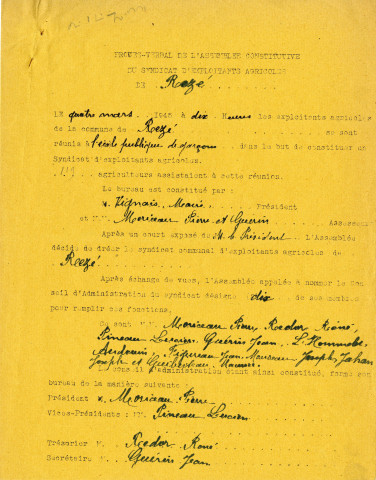 PROCES-VERBAL DE L'ASSEMBLEE CONSTITUTIVE
DU SYNDICAT D'EXPLOITANTS AGRICOLES
DE Rezé
LE quatre mars 1945 à dix Heures les exploitants agricoles
de la commune de Rezé se sont
réunis à l'école publique de garçons dans le but de constituer un
Syndicat d'exploitants agricoles.
agriculteurs assistaient à cette réunion.
Le bureau est constitué par :
M. Vignais, Maire Président
et M.M. Moriceau Pierre et Guérin Assesseurs
Après un court exposé de M. le Président l'Assemblée
décide de créer le syndicat communal d'exploitants agricoles de
Rezé
Après échange de vues, l'Assemblée appelée à nommer le Con
seil d'Administration du syndicat désigne dix de ses membres
pour remplir ces fonctions.
Ce sont M.M. Moriceau Pierre, Rodor René,
Pineau Lucien, Guérin Jean, L'Hommelet
Audouin, Figureau Jean, Mousseau Joseph, Jahan
Joseph et
Le conseil d'administration étant ainsi constitué, forme son
bureau de la manière suivante :
Président M. Moriceau Pierre
Vices-Présidents : MM. Pineau Lucien
Trésorier M. Rodor René
Secrétaire M. Guérin Jean